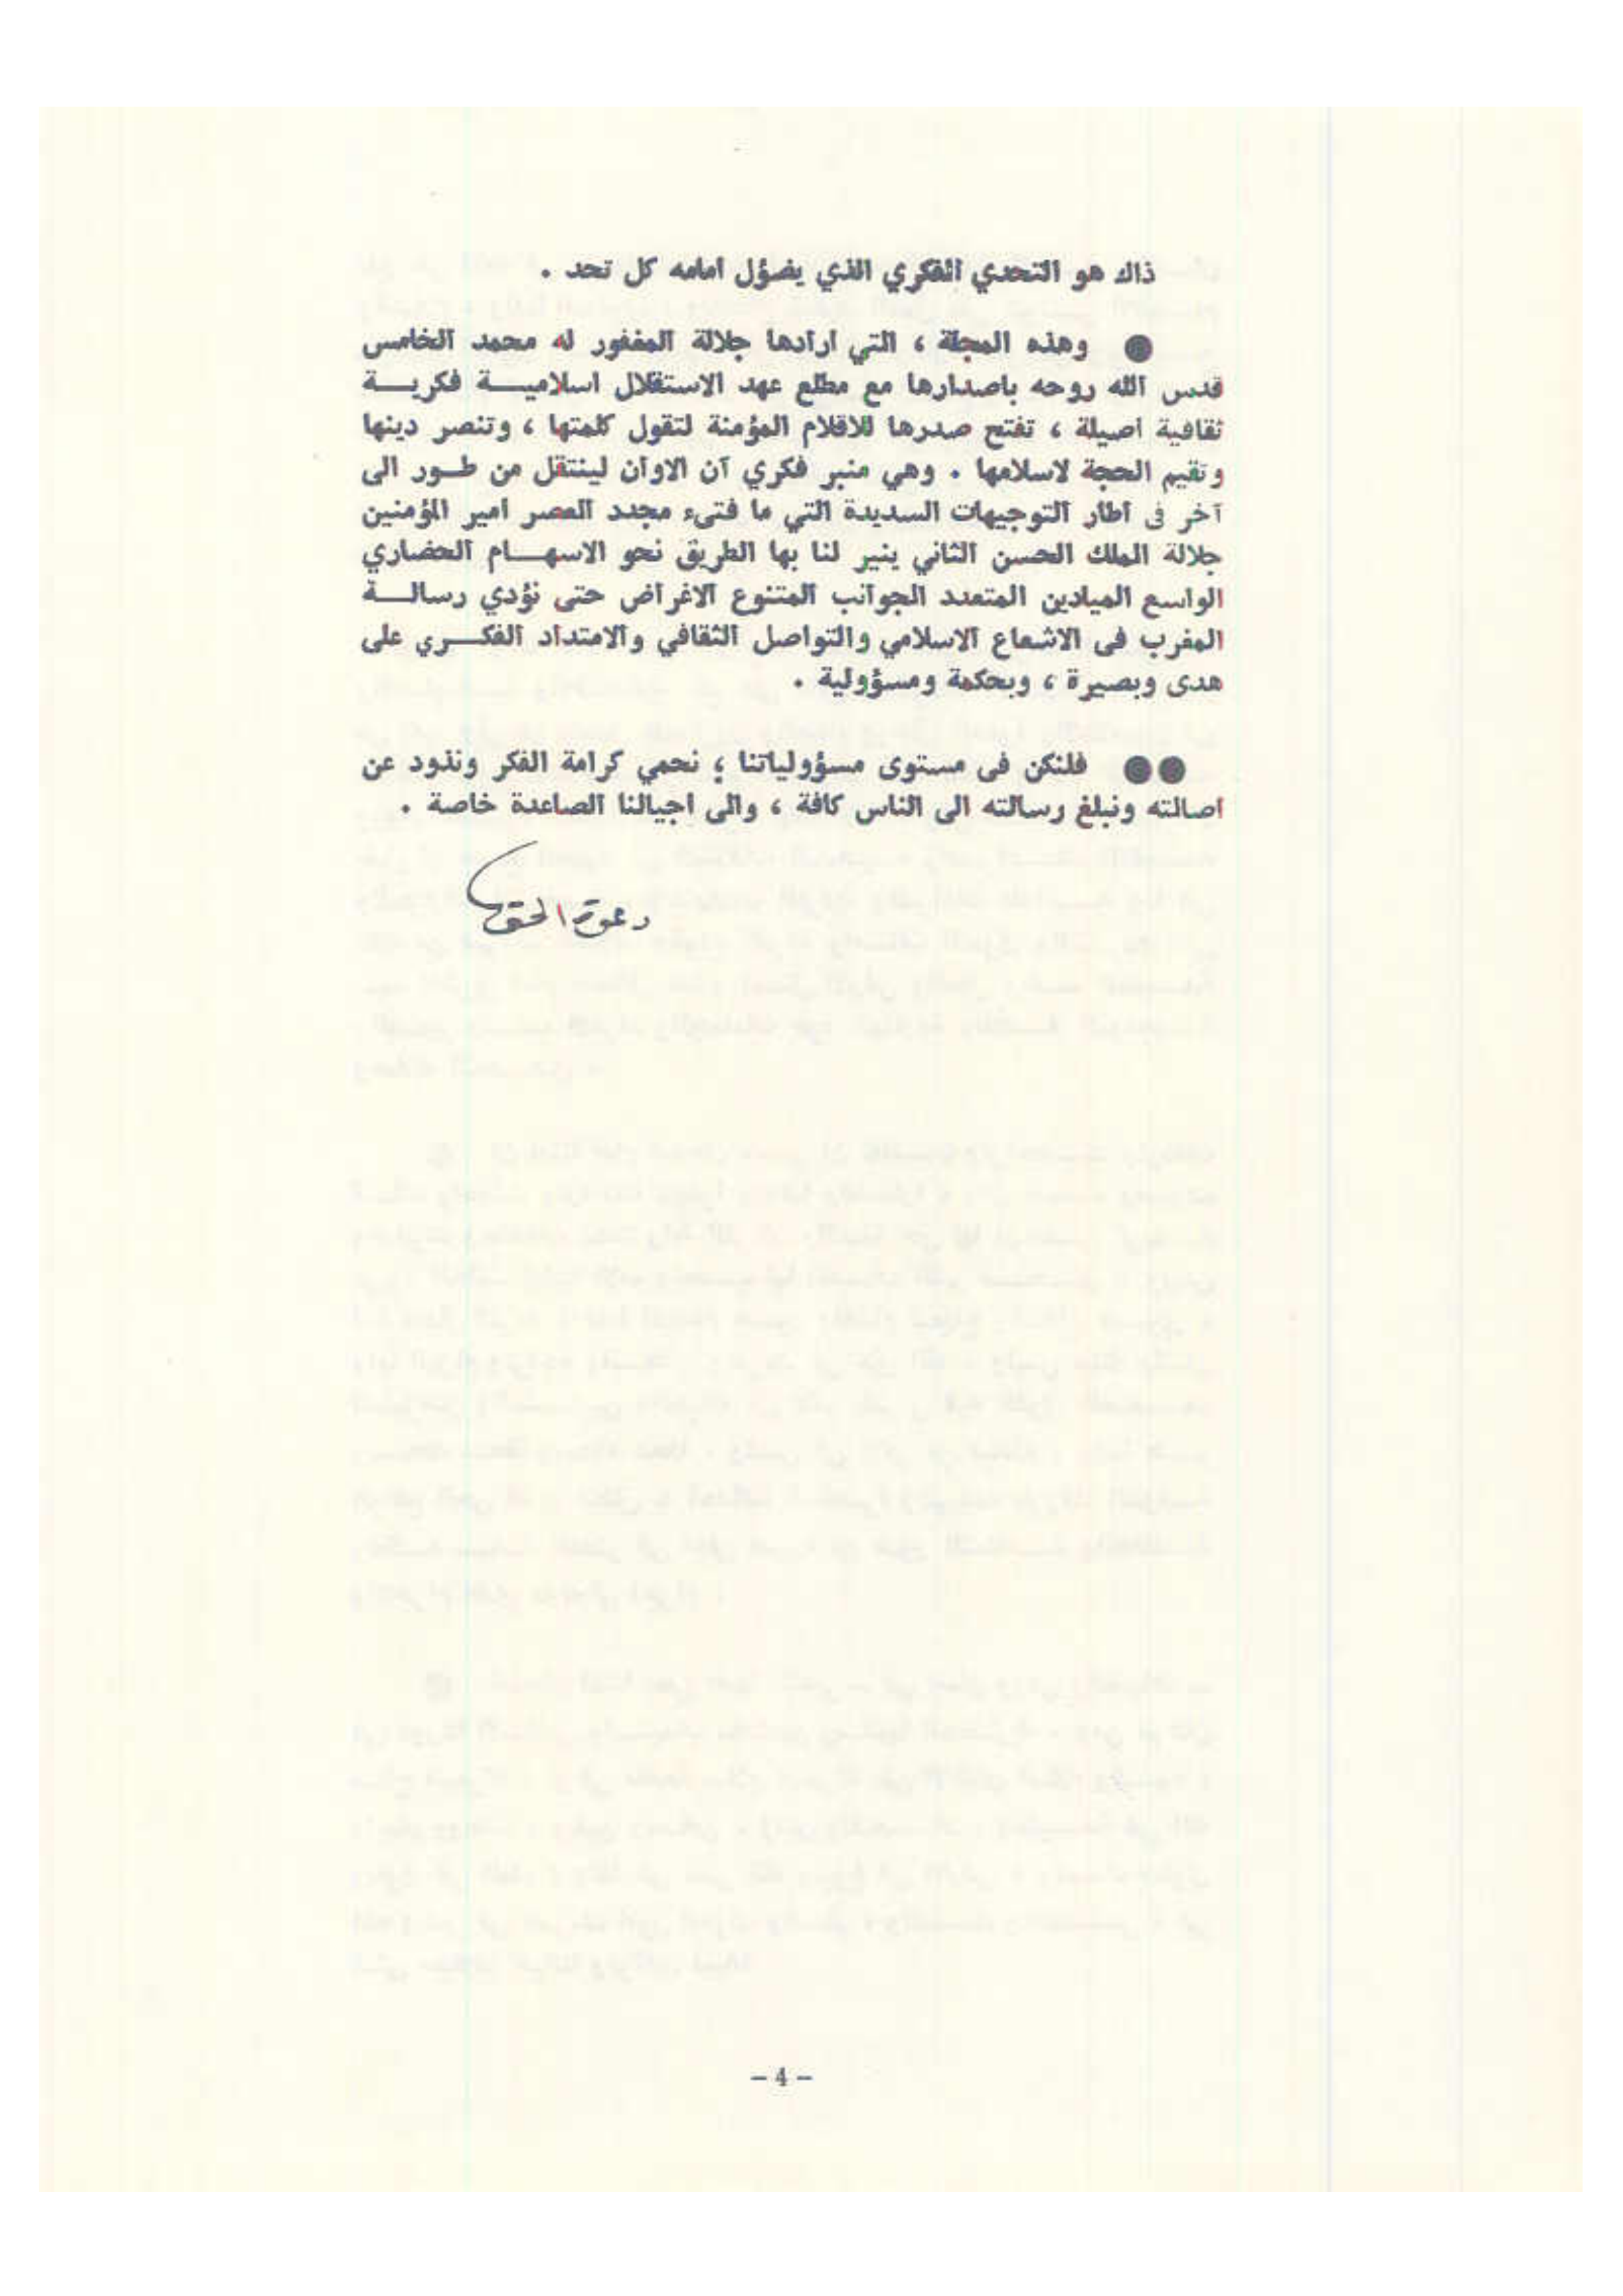 ذاك هو التحدي الفكري الذي يضؤل أمامه كل تحد .
● وهذه المجلة ، التي أرادها جلالة المغفور له محمد الخامس
قدس الله روحه باصدارها مع مطلع عهد الاستقلال اسلاميـــة فكريـــة
ثقافية أصيلة ، تفتح صدرها للاقلام المؤمنة لتقول كلمتها ، وتنصر دينها
وتقيم الحجة لاسلامها . وهي منبر فكري آن الاوان لينتقل من طــور الى
آخر فى اطار التوجيهات السديدة التي ما فتىء مجدد العصر أمير المؤمنين
جلالة الملك الحسن الثاني ينير لنا بها الطريق نحو الاسهـــام الحضاري
الواسع الميادين المتعدد الجوانب المتنوع الاغراض حتى نؤدي رسالـــة
المغرب فى الاشعاع الاسلامي والتواصل الثقافي والامتداد الفكـــري على
هدى وبصيرة ، وبحكمة ومسؤولية .
●● فلنكن فى مستوى مسؤولياتنا ؛ نحمي كرامة الفكر ونذود عن
اصالته ونبلغ رسالته الى الناس كافة ، والى أجيالنا الصاعدة خاصة .
دعوة الحق
– 4 –